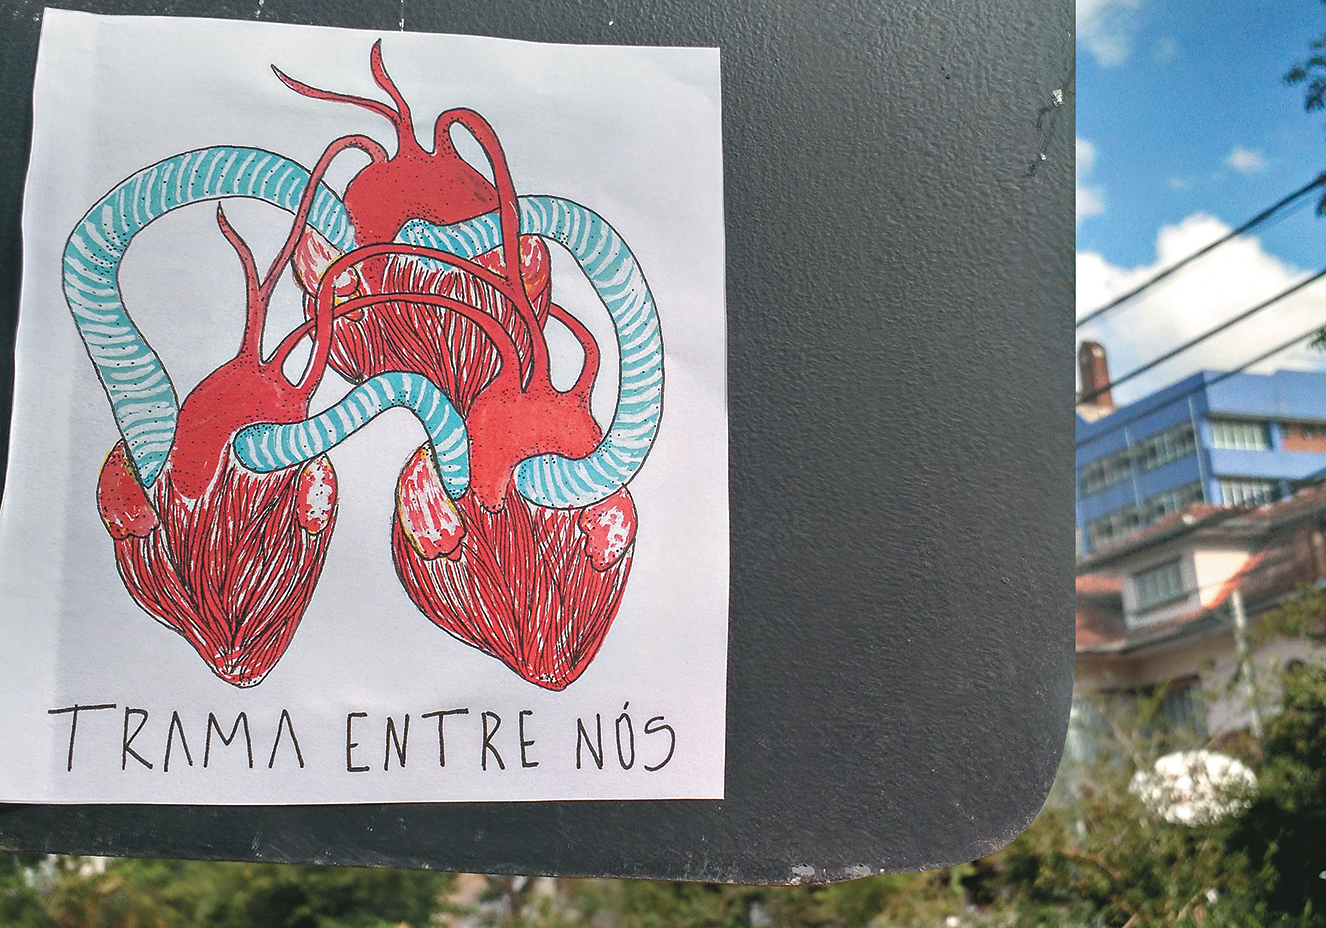 TRAMA ENTRE NÓS